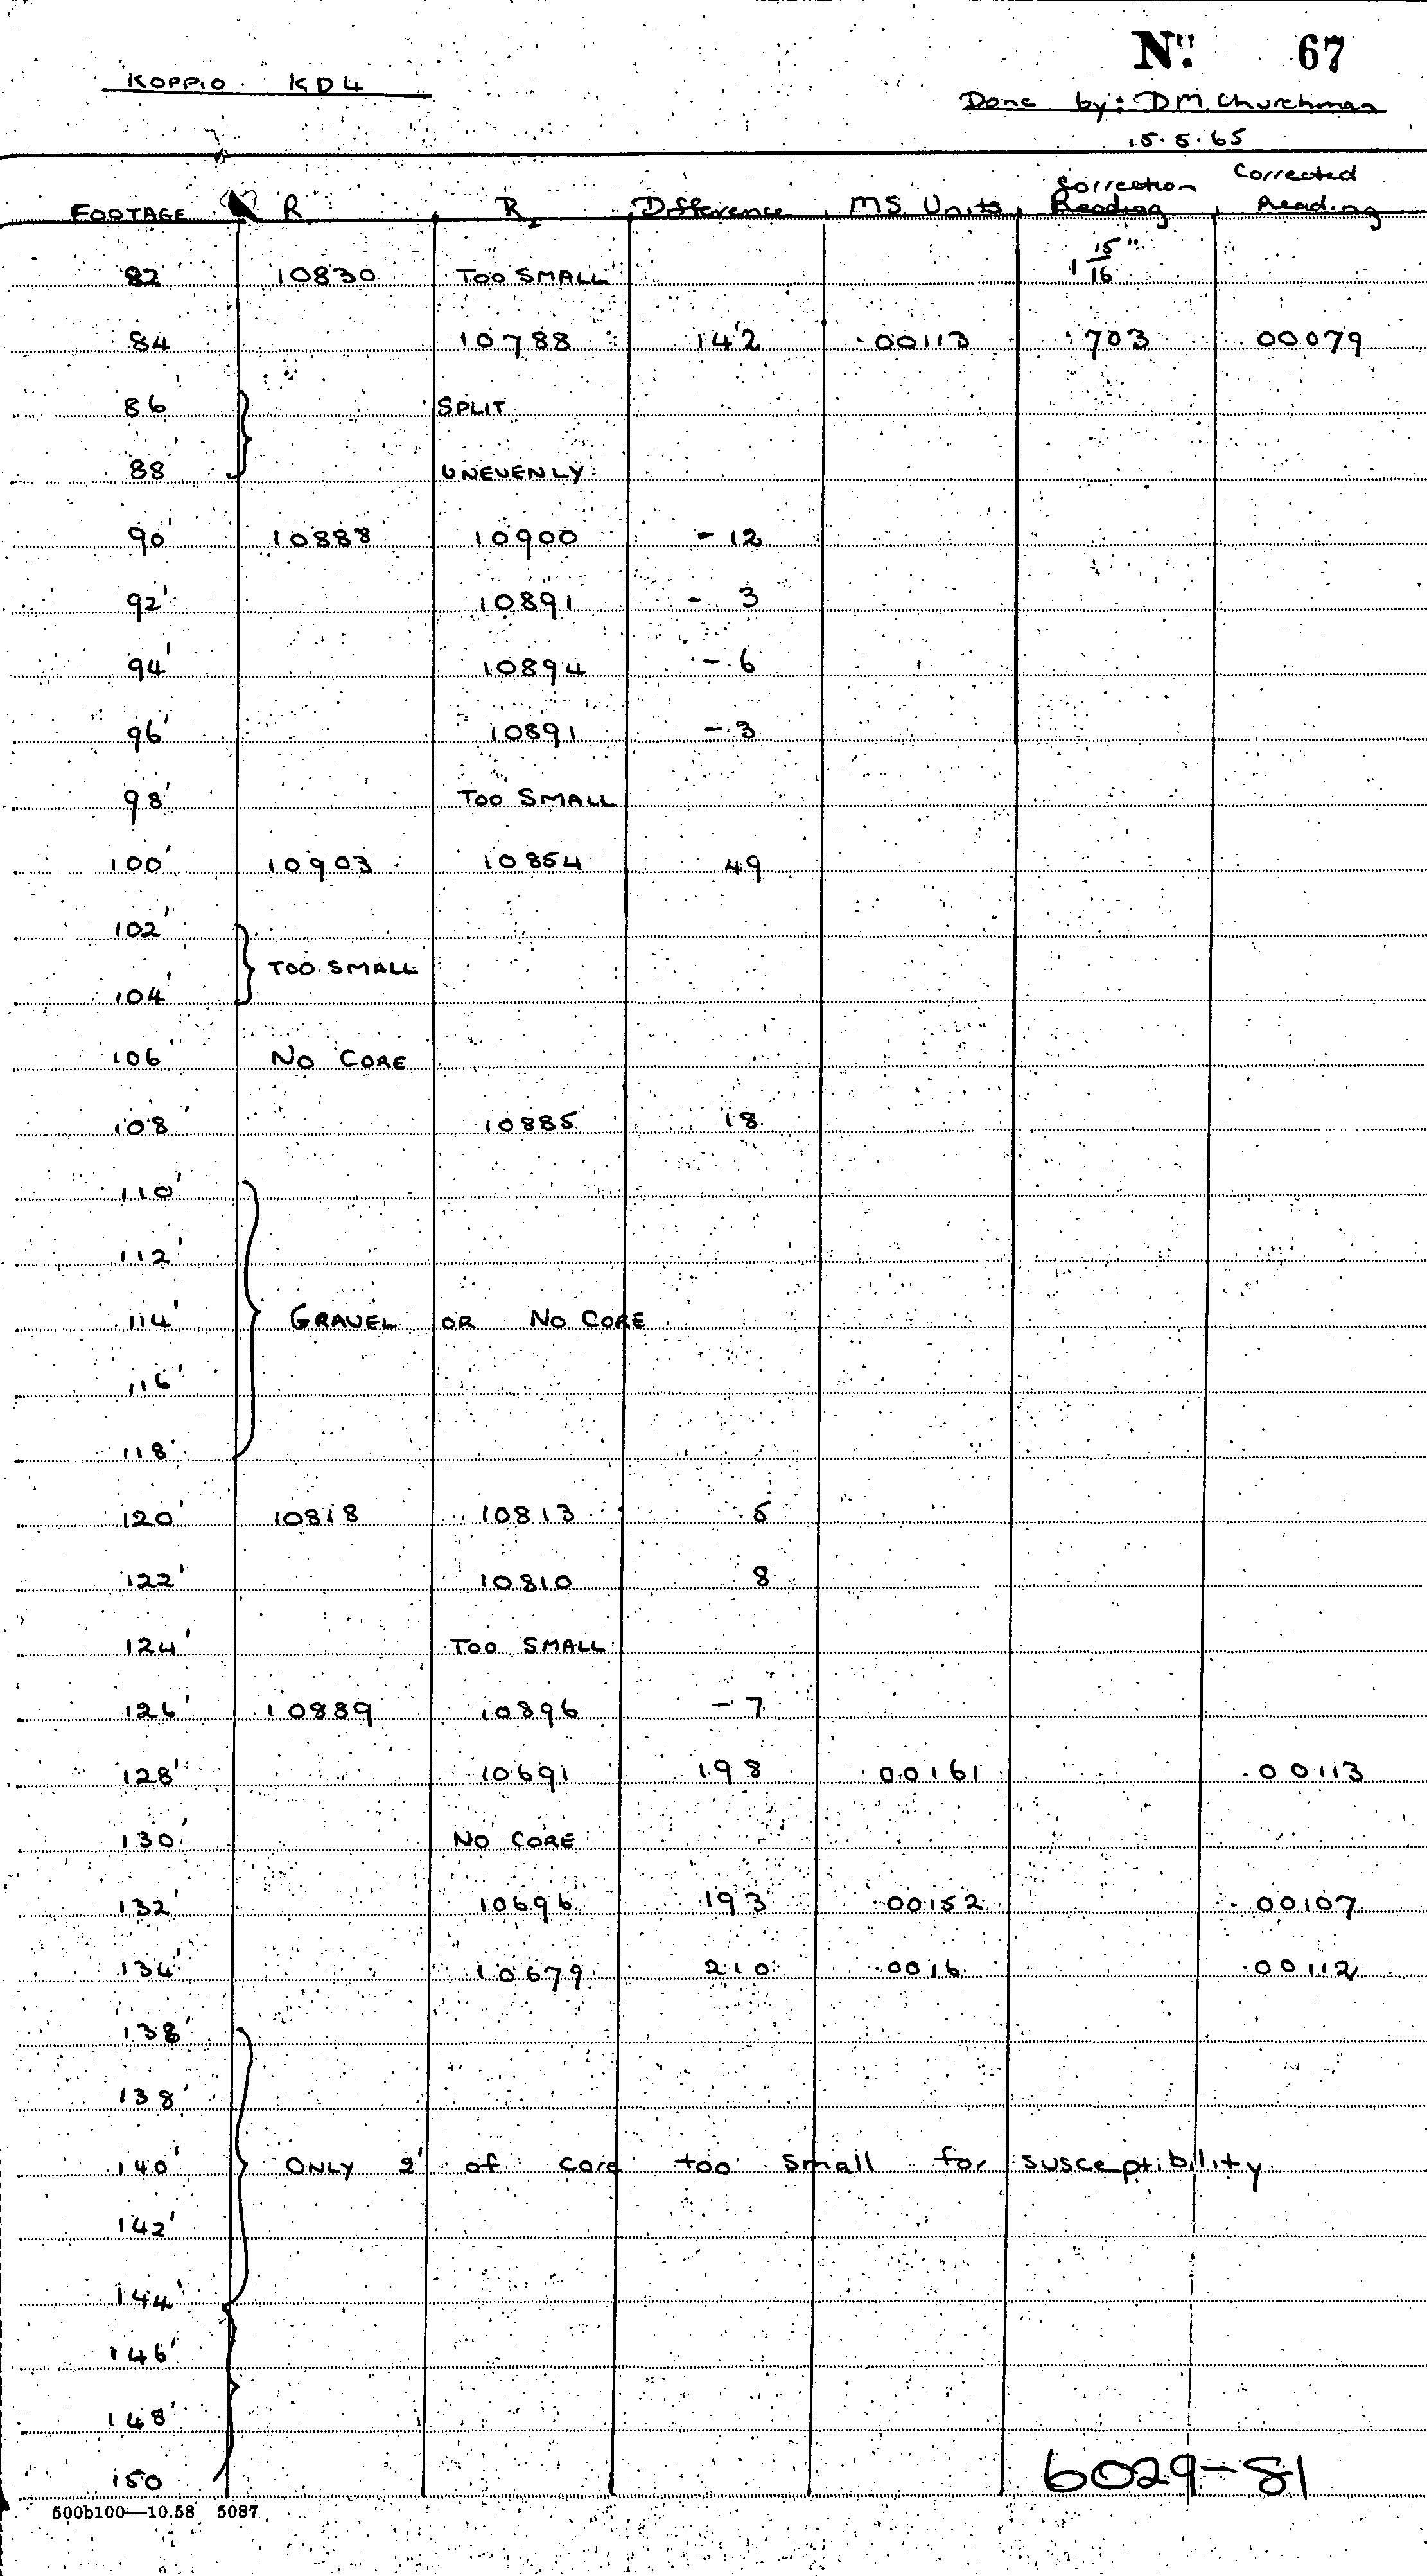 Nº 67
KOPPIO KD4
Done by: D.M. Churchman
15.5.65
FOOTAGE R R2 Difference MS. Units Correction Reading Corrected Reading
82 10830 TOO SMALL 1 15/16"
84 10788 142 .00113 .703 .00079
86 SPLIT
88 UNEVENLY
90' 10888 10900 - 12
92' 10891 - 3
94' 10894 - 6
96' 10891 - 3
98' TOO SMALL
100' 10903 10854 49
102'
TOO SMALL
104'
106' NO CORE
108' 10885 18
110'
112'
114' GRAVEL OR NO CORE
116'
118'
120' 10818 10813 5
122' 10810 8
124' TOO SMALL
126' 10889 10896 - 7
128' 10691 198 .00161 .00113
130' NO CORE
132' 10696 193 .00152 .00107
134' 10679 210 .0016 .00112
138'
138'
140' ONLY 2' of core too small for susceptibility
142'
144'
146'
148'
150
6029-81
500b100—10.58 5087